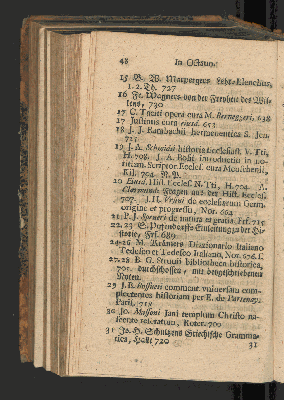 48 In Octavo.
15 P. W. Marpergers Lehr-Elenchus,
1. 2. Th. 727
16 Fr. Wagners von der Freyheit des Wil-
lens, 730
17 C. Taciti opera cura M. Berneggeri, 638
17 Justinus cura 653
18 J. J. Rambachii hermeneutica S. Jen.
723
19 J. A. Schmidii historia ecclesiast. V. Tti,
H. 708. J. A. Bosii introductio in no-
titiam Scriptor. Eccles. cura Meuschenii,
Kil. 704
20 Hist. Eccles. N. Tti, H. 704. A.
Fragen aus der Hist. Eccles.
707. J. H. Ursini de ecclesiarum Germ.
origine et progressu, Nor. 664
21 P. J. Speners de natura et gratia Frf. 715
22. 23 Einleitung zu der Hi-
storie, Frf. 689
24-26 M. Krämers Dizzionario Italiano
Tedesco et Tedesco Italiano, Nor. 676. f.
27. 28 B. G. Struvii bibliotheca historica,
705. durchschossen, mit beygeschriebnen
Noten.
29 J. B. Bossueti comment. vniversam com-
plectentes historiam per E. de Partenay.
Paris. 718
30 Jo. Massoni Jani templum Christo na-
scente reseratum, Roter. 700
31 Jo. H. Schultzens Griechische Gramma-
tica, Hall 720
31